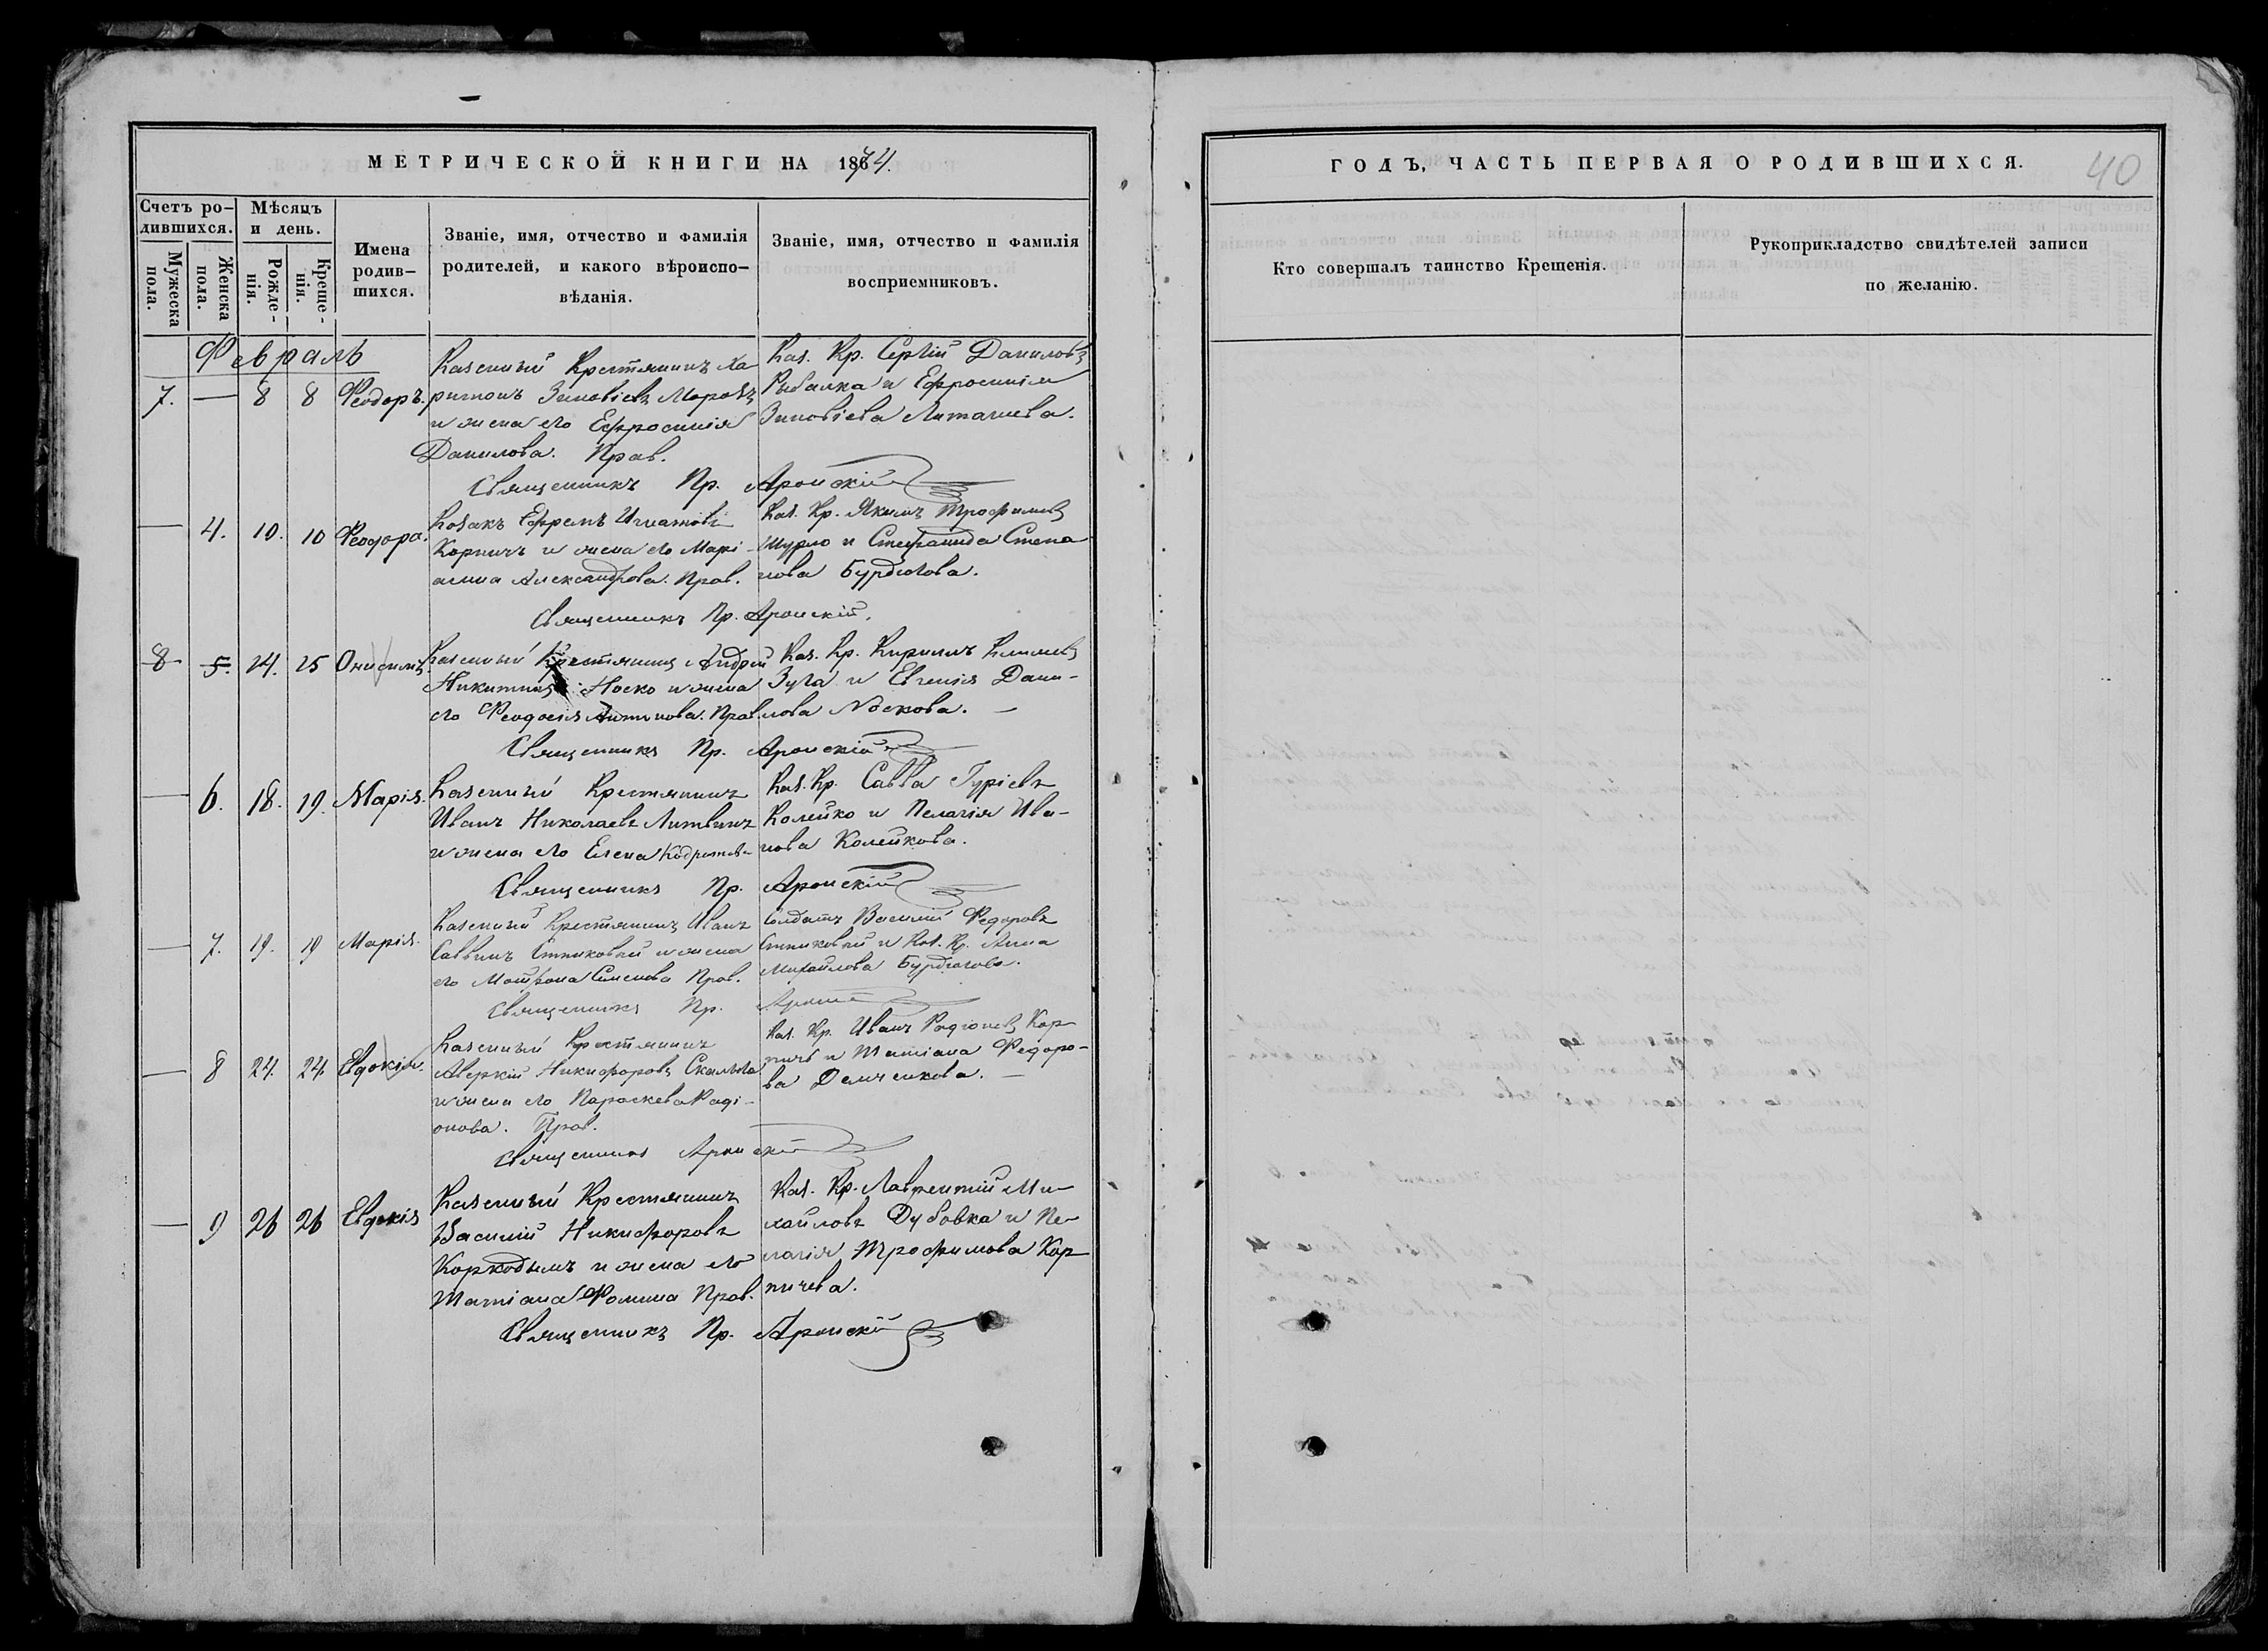 МЕТРИЧЕСКОЙ КНИГИ НА 1874.
Счетъ ро-
дившихся.
Мужеска
пола.
Женска
пола.
Мѣсяцъ
и день.
Рожде-
нія.
Креще-
нія.
Имена
родив-
шихся.
Званіе, имя, отчество и фамилія
родителей, и какого вѣроиспо-
вѣданія.
Званіе, имя, отчество и фамилія
восприемниковъ.
Февраль
7. — 8 8 Феодоръ.
Казенный Крестянинъ Ха
ритонъ Зиновіевъ Морозъ
и жена его Ефросинія
Данилова. Прав.
Каз. Кр. Сергій Даниловъ
Рыбалка и Ефросинія
Зиновіева Литашева.
Священникъ Пр. Аронскій
— 4. 10. 10 Феодора.
Козакъ Ефремъ Игнатовъ
Корпичъ и жена его Марі-
анна Александрова. Прав.
Каз. Кр. Якимъ Трофимовъ
Шурло и Стефанида Степа
нова Бурдюгова.
Священникъ Пр. Аронскій.
8 5. 14. 15 Онисимъ.
Казенный Крестянинъ Андрей
Никитинъ Носко и жена
его Феодосія Антипова. Прав.
Каз. Кр. Кирилъ Климовъ
Зуга и Евгенія Дани-
лова Носкова. —
Священникъ Пр. Аронскій
— 6. 18. 19. Марія.
Казенный Крестянинъ
Иванъ Николаевъ Литвинъ
и жена его Елена Кодратова
Каз. Кр. Савва Гуріевъ
Колейко и Пелагія Ива-
нова Колейкова.
Священникъ Пр. Аронскій
— 7. 19. 19 Марія.
Казенный Крестянинъ Иванъ
Саввинъ Ситниковый и жена
его Мотрона Семенова Прав.
Солдатъ Василій Федоровъ
Ситниковый и Каз. Кр. Анна
Михайлова Бурдюгова.
Священникъ Пр. Аронскій
— 8 24. 24 Евдокія.
Казенный Крестянинъ
Аверкій Никифоровъ Скалыга
и жена его Параскева Раді-
онова. Прав.
Каз. Кр. Иванъ Радіоновъ Кор
пичъ и Татіана Федоро-
ва Демченкова. —
Священникъ Аронскій
— 9 26 26 Евдокія
Казенный Крестянинъ
Василій Никифоровъ
Коркодымъ и жена его
Татіана Фомина Прав.
Каз. Кр. Лаврентій Ми-
хайловъ Дубовка и Пе-
лагія Трофимова Кор
пичева.
Священникъ Пр. Аронскій
ГОДЪ, ЧАСТЬ ПЕРВАЯ О РОДИВШИХСЯ.
40
Кто совершалъ таинство Крещенія.
Рукоприкладство свидѣтелей записи
по желанію.